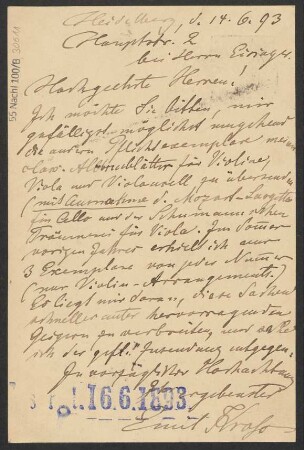 Heidelberg, d. 14.6.93
Hauptstr. 2
bei Herrn Eisinger.
Hochgeehrte Herren!
Ich möchte Sie bitten, mir
gefälligst möglichst umgehend
die andern Pflichtexemplare meiner
class. Albumblätter für Violine,
Viola und Violoncell zu übersenden
(mit Ausnahme d. Mozart-Larghetto
für Cello und der Schumann'schen
Träumerei für Viola. Im Sommer
vorigen Jahres erhielt ich nur
3 Exemplare von jeder Nummer
(nur Violin-Arrangements).
Es liegt mir daran, diese Sachen
schneller unter hervorragenden
Geigern zu verbreiten, und sehe
ich der gefl. Zusendung entgegen.
In vorzüglicher Hochachtung
ergebenster
Emil Kross
16.6.1893
55 Nachl 100/B